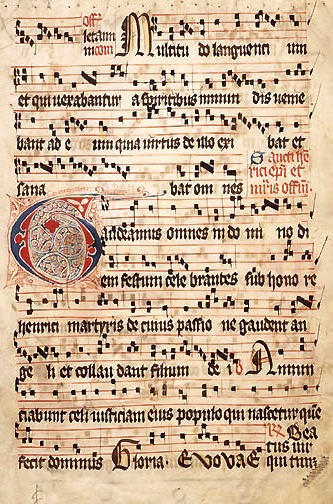 off͞
letam
incom Multitu do languenti um
et qui uexabantur a spiritibus inmun dis venie
bant ad e um quia virtus de illo exi bat et
sana bat om nes
Sancti he
rici ep͞i et
m͞ris offm̄.
Gaudeamus omnes in do mi no di
em festum cele brantes sub hono re
henrici martyris de cuius passio ne gaudent an
ge li et collau dant filium de i Annun
ciabunt celi iusticiam eius populo qui nascetur que
fecit dominus Gloria. E v o v a E
Bea
tus uir
qui tim